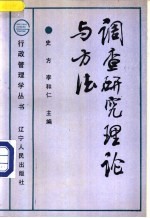 调查研究理论
与方法
史方 李科仁 主编
行政管理学丛书
辽宁人民出版社